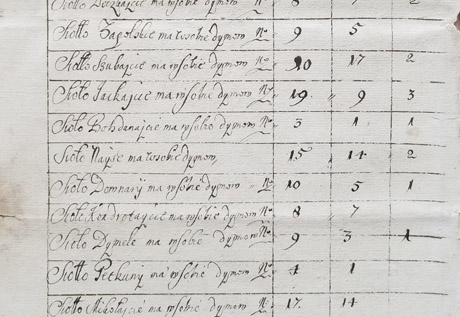 ma w sobie dymow No 8 7 2
Sioło Zagolskie ma w sobie dymow No 9 5
Sioło Szubajcie ma w sobie dymow No 20 17 2
Sioło Jackajcie ma w sobie dymow No 19 9 3
Sioło Bohdanajcie ma w sobie dymow No 3 1 1
Sioło ma w sobie dymow 15 14 2
Sioło Downary ma w sobie dymow No 10 5 1
Sioło Kondrotajcie ma w sobie dymow No 8 7
Sioło Dymele ma w sobie dymow No 9 3 1
Sioło Petkuny ma w sobie dymow No 4 1
Sioło Mikołajcie ma w sobie dymow No 17 14